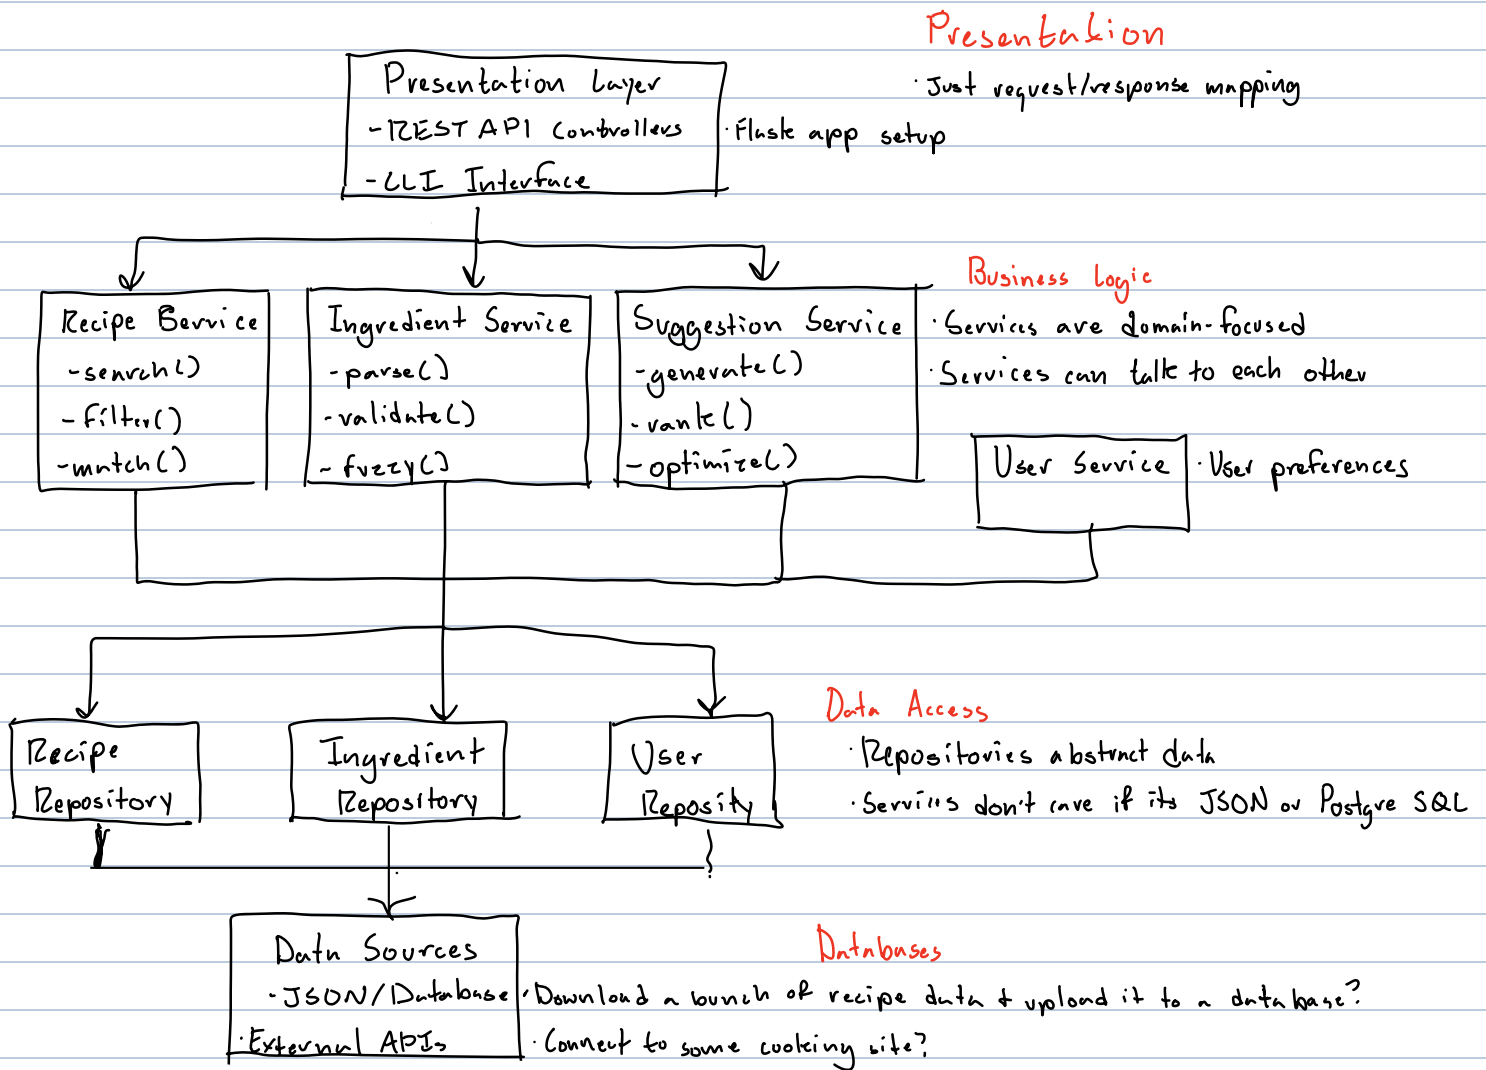 Presentation
Presentation Layer
- REST API Controllers
- CLI Interface
· Just request/response mapping
· Flask app setup
Recipe Service
- search()
- filter()
- match()
Ingredient Service
- parse()
- validate()
- fuzzy()
Suggestion Service
- generate()
- rank()
- optimize()
Business Logic
· Services are domain-focused
· Services can talk to each other
User Service
· User preferences
Recipe
Repository
Ingredient
Repository
User
Reposity
Data Access
· Repositories abstract data
· Services don't care if its JSON or Postgre SQL
Data Sources
· JSON/Database
· External APIs
Databases
· Download a bunch of recipe data + upload it to a database?
· Connect to some cooking site?